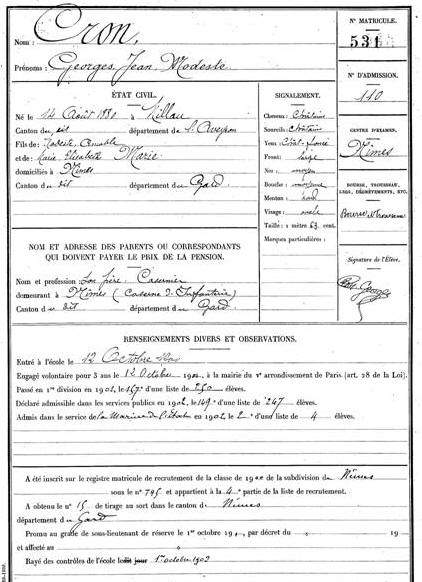 Nom : Cron,
Prénoms : Georges, Jean, Modeste
ÉTAT CIVIL.
Né le 14 Août 1880 à Millau
Canton du dit département de l'Aveyron
Fils de : Modeste, Amable
et de : Marie Elisabeth Marie
domiciliés à Nîmes
Canton du dit département du Gard
NOM ET ADRESSE DES PARENTS OU CORRESPONDANTS
QUI DOIVENT PAYER LE PRIX DE LA PENSION.
Nom et profession : Son père Casernier
demeurant à Nîmes (Caserne d'Infanterie)
Canton du dit département du Gard
SIGNALEMENT.
Cheveux : Châtains
Sourcils : Châtains
Yeux :
Front : large
Nez : moyen
Bouche : moyenne
Menton : rond
Visage : ovale
Taille : 1 mètre 63 cent.
Marques particulières :
N° MATRICULE.
N° D'ADMISSION.
110
CENTRE D'EXAMEN.
Nîmes
BOURSE, TROUSSEAU,
LEGS, DÉGRÈVEMENTS, ETC.
Bourse et trousseau
Signature de l'Élève.
Georges
RENSEIGNEMENTS DIVERS ET OBSERVATIONS.
Entré à l'école le 12 Octobre 1900
Engagé volontaire pour 3 ans le 12 Octobre 1900, à la mairie du Ve arrondissement de Paris (art. 28 de la Loi).
Passé en 1re division en 1901, le 167e d'une liste de 250 élèves.
Déclaré admissible dans les services publics en 1902, le 149e d'une liste de 247 élèves.
Admis dans le service de la Marine de l'État en 1902, le 2e d'une liste de 4 élèves.
A été inscrit sur le registre matricule de recrutement de la classe de 1900 de la subdivision de Nîmes
sous le n° 795 et appartient à la 4e partie de la liste de recrutement.
A obtenu le n° 15 de tirage au sort dans le canton de Nîmes
département du Gard
Promu au grade de sous-lieutenant de réserve le 1er octobre 19 , par décret du 19
et affecté au
Rayé des contrôles de l'école le 1er octobre 1902